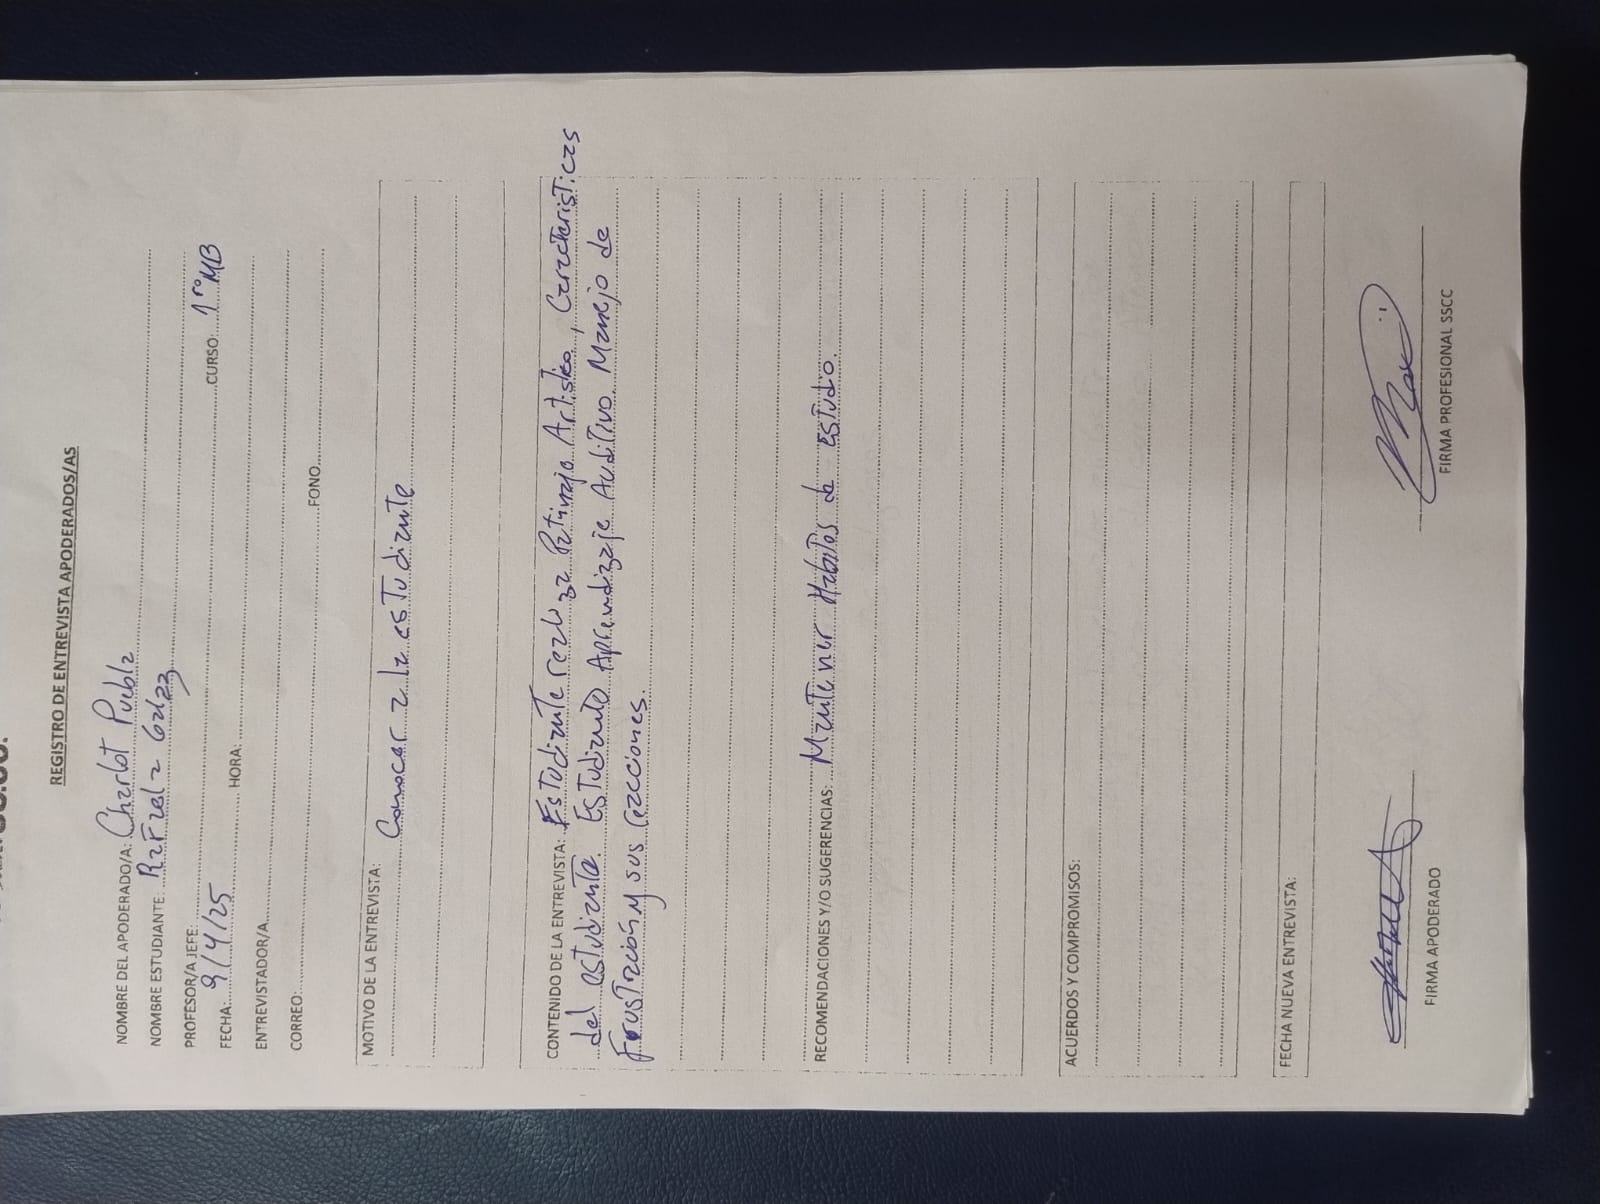 REGISTRO DE ENTREVISTA APODERADOS/AS
NOMBRE DEL APODERADO/A: Charlot Puebla
NOMBRE ESTUDIANTE: Rafaela
PROFESOR/A JEFE: CURSO: 1roMB
FECHA: 9/4/25 HORA:
ENTREVISTADOR/A
CORREO: FONO
MOTIVO DE LA ENTREVISTA:
Conocer a la estudiante
CONTENIDO DE LA ENTREVISTA: Estudiante realiza Patinaje Artístico, Caracteristicas
del estudiante. Estudiante Aprendizaje Auditivo. Manejo de
Frustración y sus reacciones.
RECOMENDACIONES Y/O SUGERENCIAS: Mantener Habitos de estudio.
ACUERDOS Y COMPROMISOS:
FECHA NUEVA ENTREVISTA:
FIRMA APODERADO
FIRMA PROFESIONAL SSCC